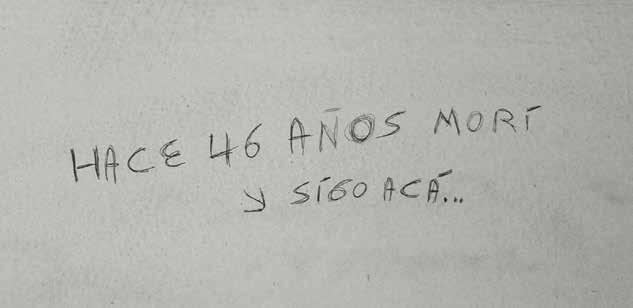 HACE 46 AÑOS MORÍ
Y SIGO ACÁ...